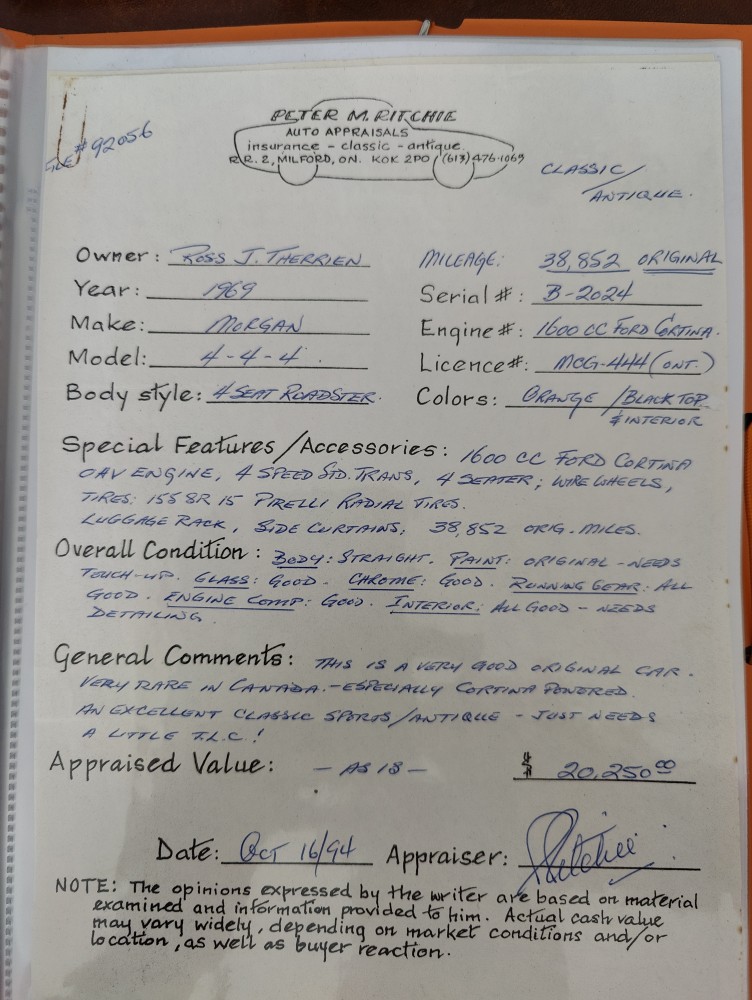 FILE # 92056
PETER M. RITCHIE
AUTO APPRAISALS
insurance - classic - antique
R.R. 2, MILFORD, ON. K0K 2P0 (613) 476-1069
CLASSIC/
ANTIQUE.
Owner: ROSS J. THERRIEN
MILEAGE: 38,852 ORIGINAL
Year: 1969
Serial #: B-2024
Make: MORGAN
Engine #: 1600 CC FORD CORTINA.
Model: 4-4-4.
Licence#: MCG-444 (ONT.)
Body style: 4 SEAT ROADSTER.
Colors: ORANGE / BLACK TOP
& INTERIOR
Special Features/Accessories: 1600 CC FORD CORTINA
OHV ENGINE, 4 SPEED STD. TRANS, 4 SEATER; WIRE WHEELS,
TIRES: 155 SR 15 PIRELLI RADIAL TIRES.
LUGGAGE RACK, SIDE CURTAINS; 38,852 ORIG. MILES.
Overall Condition: BODY: STRAIGHT. PAINT: ORIGINAL - NEEDS
TOUCH-UP. GLASS: GOOD. CHROME: GOOD. RUNNING GEAR: ALL
GOOD. ENGINE COMP: GOOD. INTERIOR: ALL GOOD - NEEDS
DETAILING.
General Comments: THIS IS A VERY GOOD ORIGINAL CAR.
VERY RARE IN CANADA. - ESPECIALLY CORTINA POWERED.
AN EXCELLENT CLASSIC SPORTS/ANTIQUE - JUST NEEDS
A LITTLE T.L.C.!
Appraised Value: - AS IS - $ 20,250.00
Date: OCT 16/94 Appraiser: Ritchie
NOTE: The opinions expressed by the writer are based on material
examined and information provided to him. Actual cash value
may vary widely, depending on market conditions and/or
location, as well as buyer reaction.